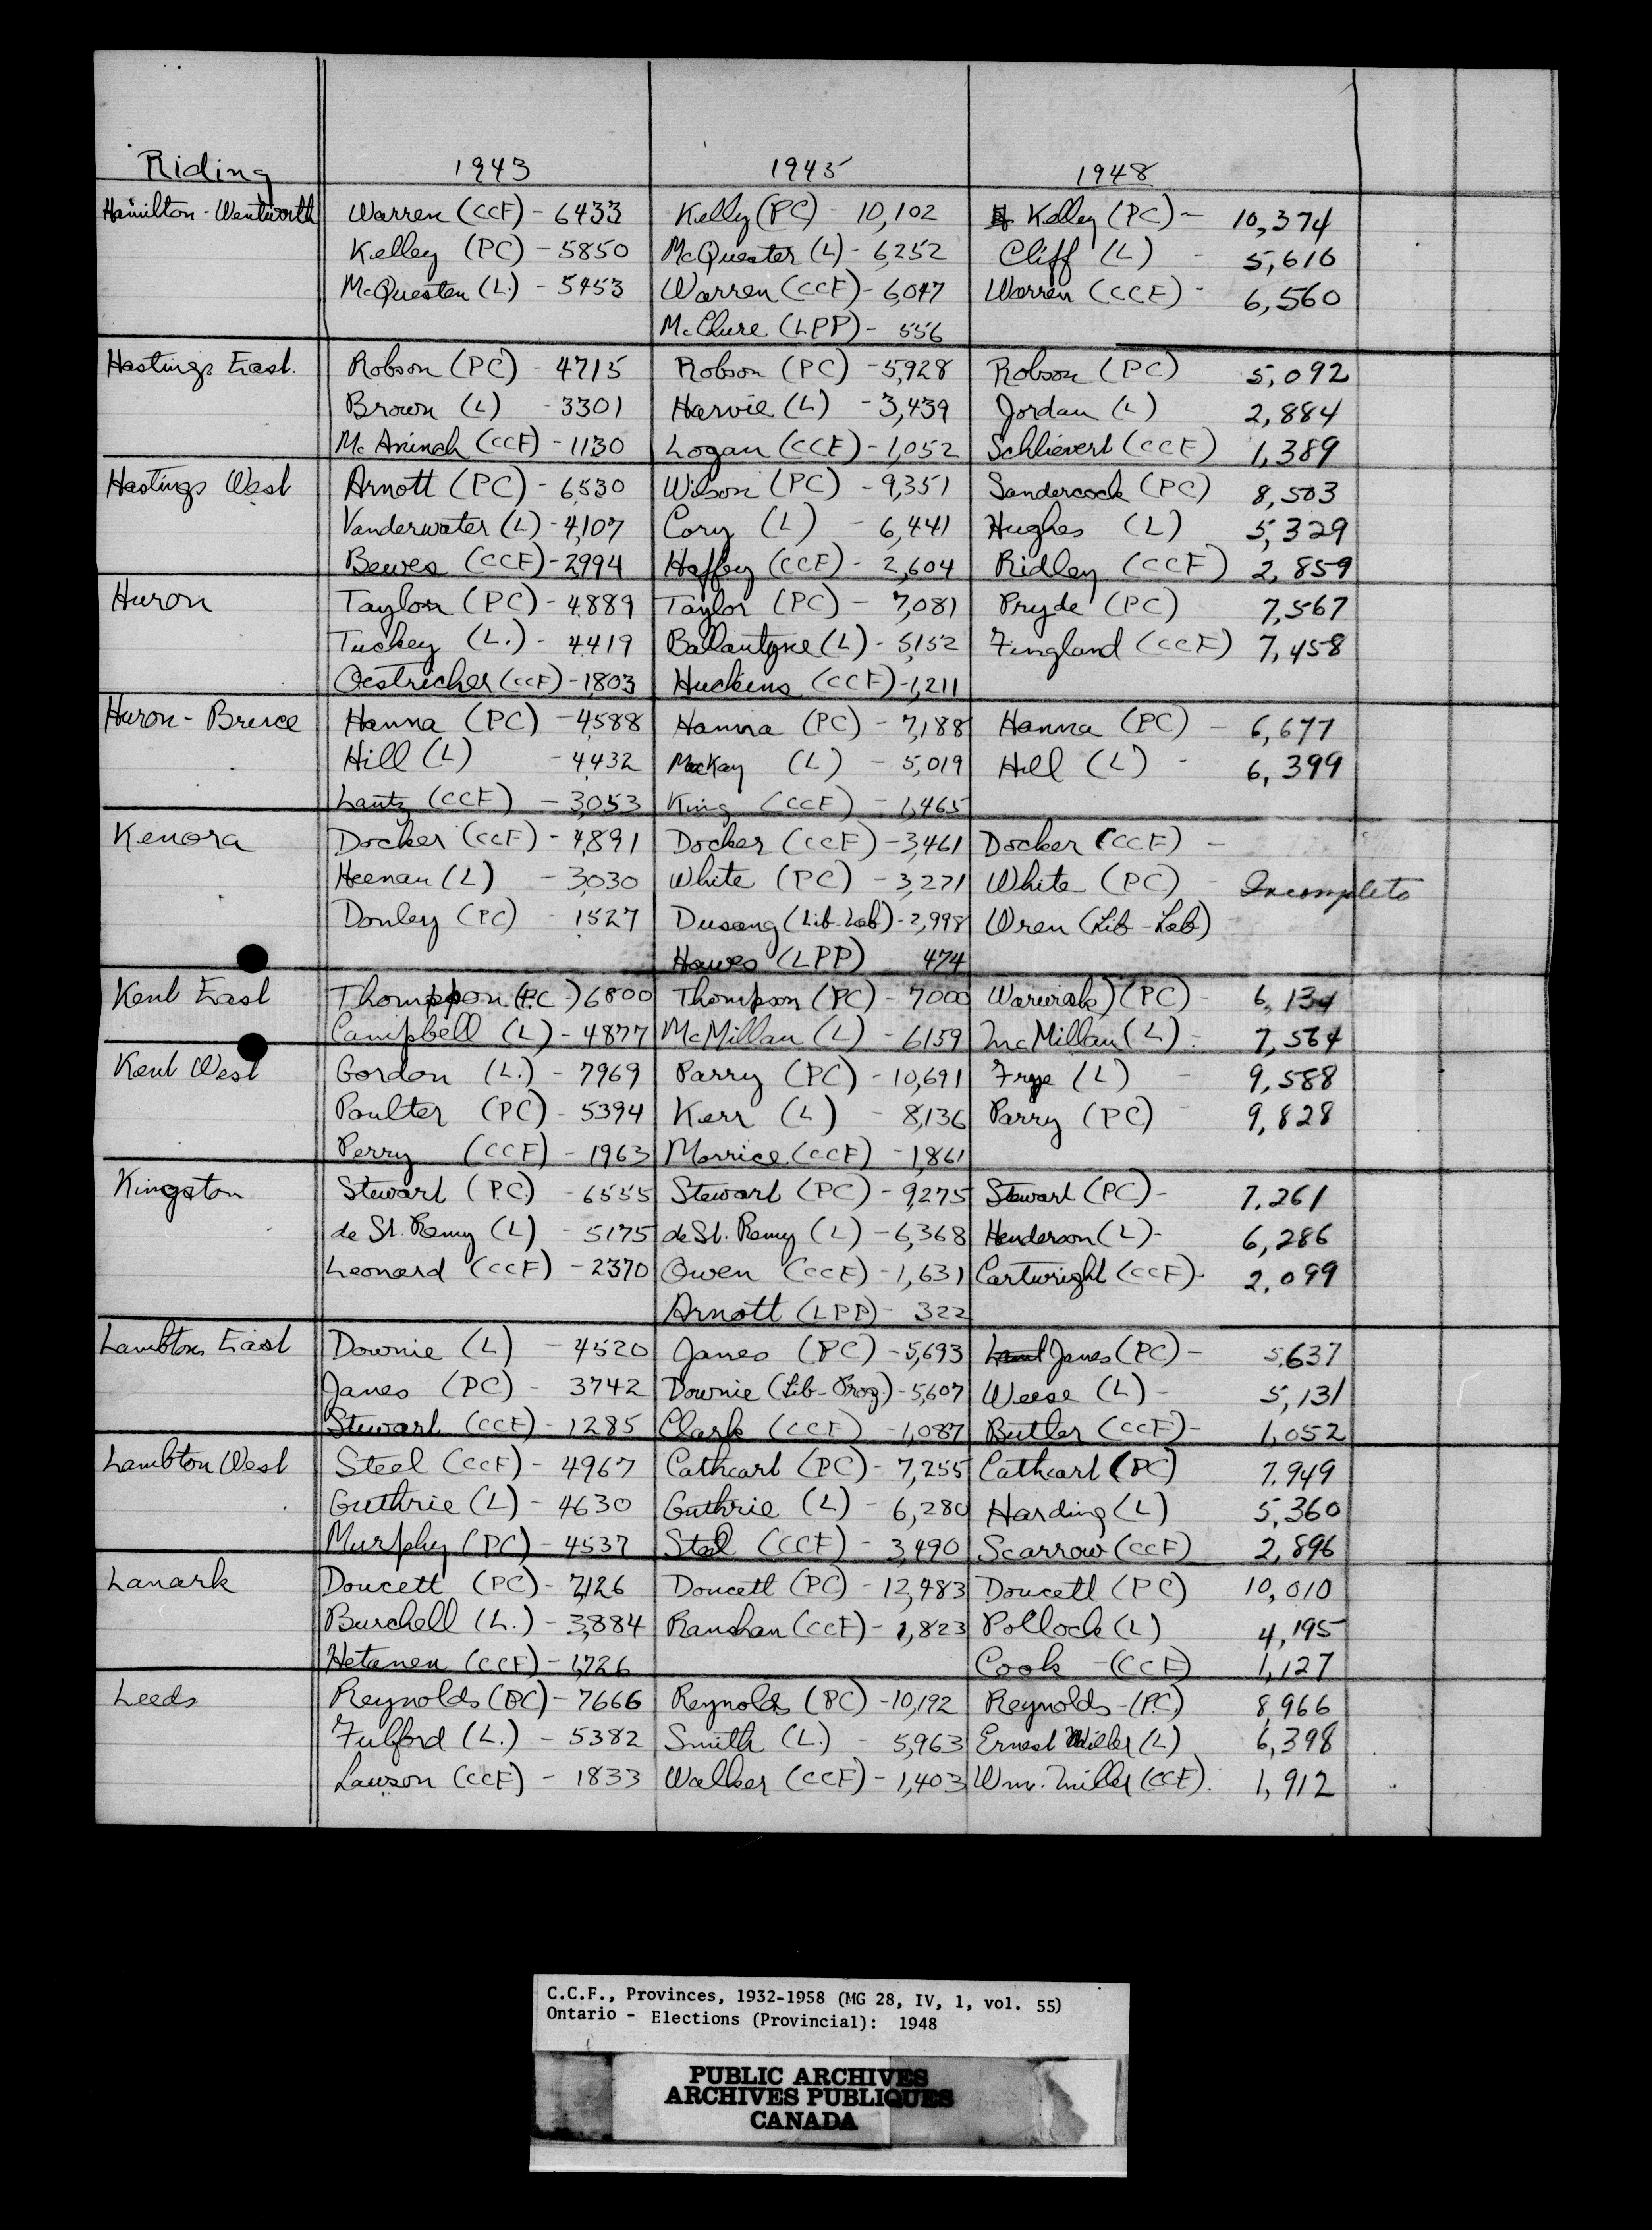 Riding 1943 1945 1948
Hamilton-Wentworth Warren (CCF) - 6433 Kelly (PC) - 10,102 Kelley (PC) - 10,374
Kelley (PC) - 5850 McQuester (L) - 6,252 Cliff (L) - 5,616
McQuesten (L.) - 5453 Warren (CCF) - 6,047 Warren (CCF) - 6,560
McClure (LPP) - 556
Hastings East. Robson (PC) - 4715 Robson (PC) - 5,928 Robson (PC) 5,092
Brown (L) - 3301 Harvie (L) - 3,439 Jordan (L) 2,884
McAninch (CCF) - 1130 Logan (CCF) - 1,052 Schlievert (CCF) 1,389
Hastings West Arnott (PC) - 6530 Wilson (PC) - 9,351 Sandercock (PC) 8,503
Vanderwater (L) - 4,107 Cory (L) - 6,441 Hughes (L) 5,329
Bewes (CCF) - 2994 Haffey (CCF) - 2,604 Ridley (CCF) 2,859
Huron Taylor (PC) - 4889 Taylor (PC) - 7,081 Pryde (PC) 7,567
Tuckey (L.) - 4419 Ballantyne (L) - 5,152 Fingland (CCF) 7,458
Oestricher (CCF) - 1,803 Huckins (CCF) - 1,211
Huron - Bruce Hanna (PC) - 4,588 Hanna (PC) - 7,188 Hanna (PC) - 6,677
Hill (L) - 4432 MacKay (L) - 5,019 Hill (L) - 6,399
Lantz (CCF) - 3,053 King (CCF) - 1,465
Kenora Docker (CCF) - 4,891 Docker (CCF) - 3,461 Docker (CCF) -
Heenan (L) - 3,030 White (PC) - 3,271 White (PC) - Incomplete
Donley (PC) - 1527 Dusang (Lib-Lab) - 2,998 Wren (Lib-Lab)
Hawes (LPP) 474
Kent East Thompson (P.C.) 6800 Thompson (PC) - 7000 Warwick (PC) - 6,134
Campbell (L) - 4877 McMillan (L) - 6159 McMillan (L) - 7,564
Kent West Gordon (L.) - 7969 Parry (PC) - 10,691 Frye (L) - 9,588
Poulter (PC) - 5394 Kerr (L) - 8,136 Parry (PC) - 9,828
Perry (CCF) - 1963 Morrice (CCF) - 1,861
Kingston Stewart (P.C.) - 6555 Stewart (PC) - 9,275 Stewart (PC) - 7.261
de St. Remy (L) - 5175 de St. Remy (L) - 6,368 Henderson (L) - 6,286
Leonard (CCF) - 2370 Owen (CCF) - 1,631 Cartwright (CCF) - 2,099
Arnott (LPP) - 322
Lambton East Downie (L) - 4520 Janes (PC) - 5,693 Janes (PC) - 5,637
Janes (PC) - 3742 Downie (Lib-Prog.) - 5,607 Weese (L) - 5,131
Stewart (CCF) - 1285 Clark (CCF) - 1,087 Butler (CCF) - 1,052
Lambton West Steel (CCF) - 4967 Cathcart (PC) - 7,255 Cathcart (PC) 7,949
Guthrie (L) - 4630 Guthrie (L) - 6,280 Harding (L) 5,360
Murphy (PC) - 4537 Steel (CCF) - 3,490 Scarrow (CCF) 2,896
Lanark Doucett (PC) - 7,126 Doucett (PC) - 12,483 Doucett (PC) 10,010
Burchell (L.) - 3,884 (CCF) - 1,823 Pollock (L) 4,195
Hetanen (CCF) - 1,726 Cook (CCF) 1,127
Leeds Reynolds (PC) - 7666 Reynolds (PC) - 10,192 Reynolds (PC) 8,966
Fulford (L.) - 5382 Smith (L.) - 5,963 Ernest Miller (L) 6,398
Lawson (CCF) - 1833 Walker (CCF) - 1,403 Wm. Miller (CCF). 1,912
C.C.F., Provinces, 1932-1958 (MG 28, IV, 1, vol. 55)
Ontario - Elections (Provincial): 1948
PUBLIC ARCHIVES
ARCHIVES PUBLIQUES
CANADA